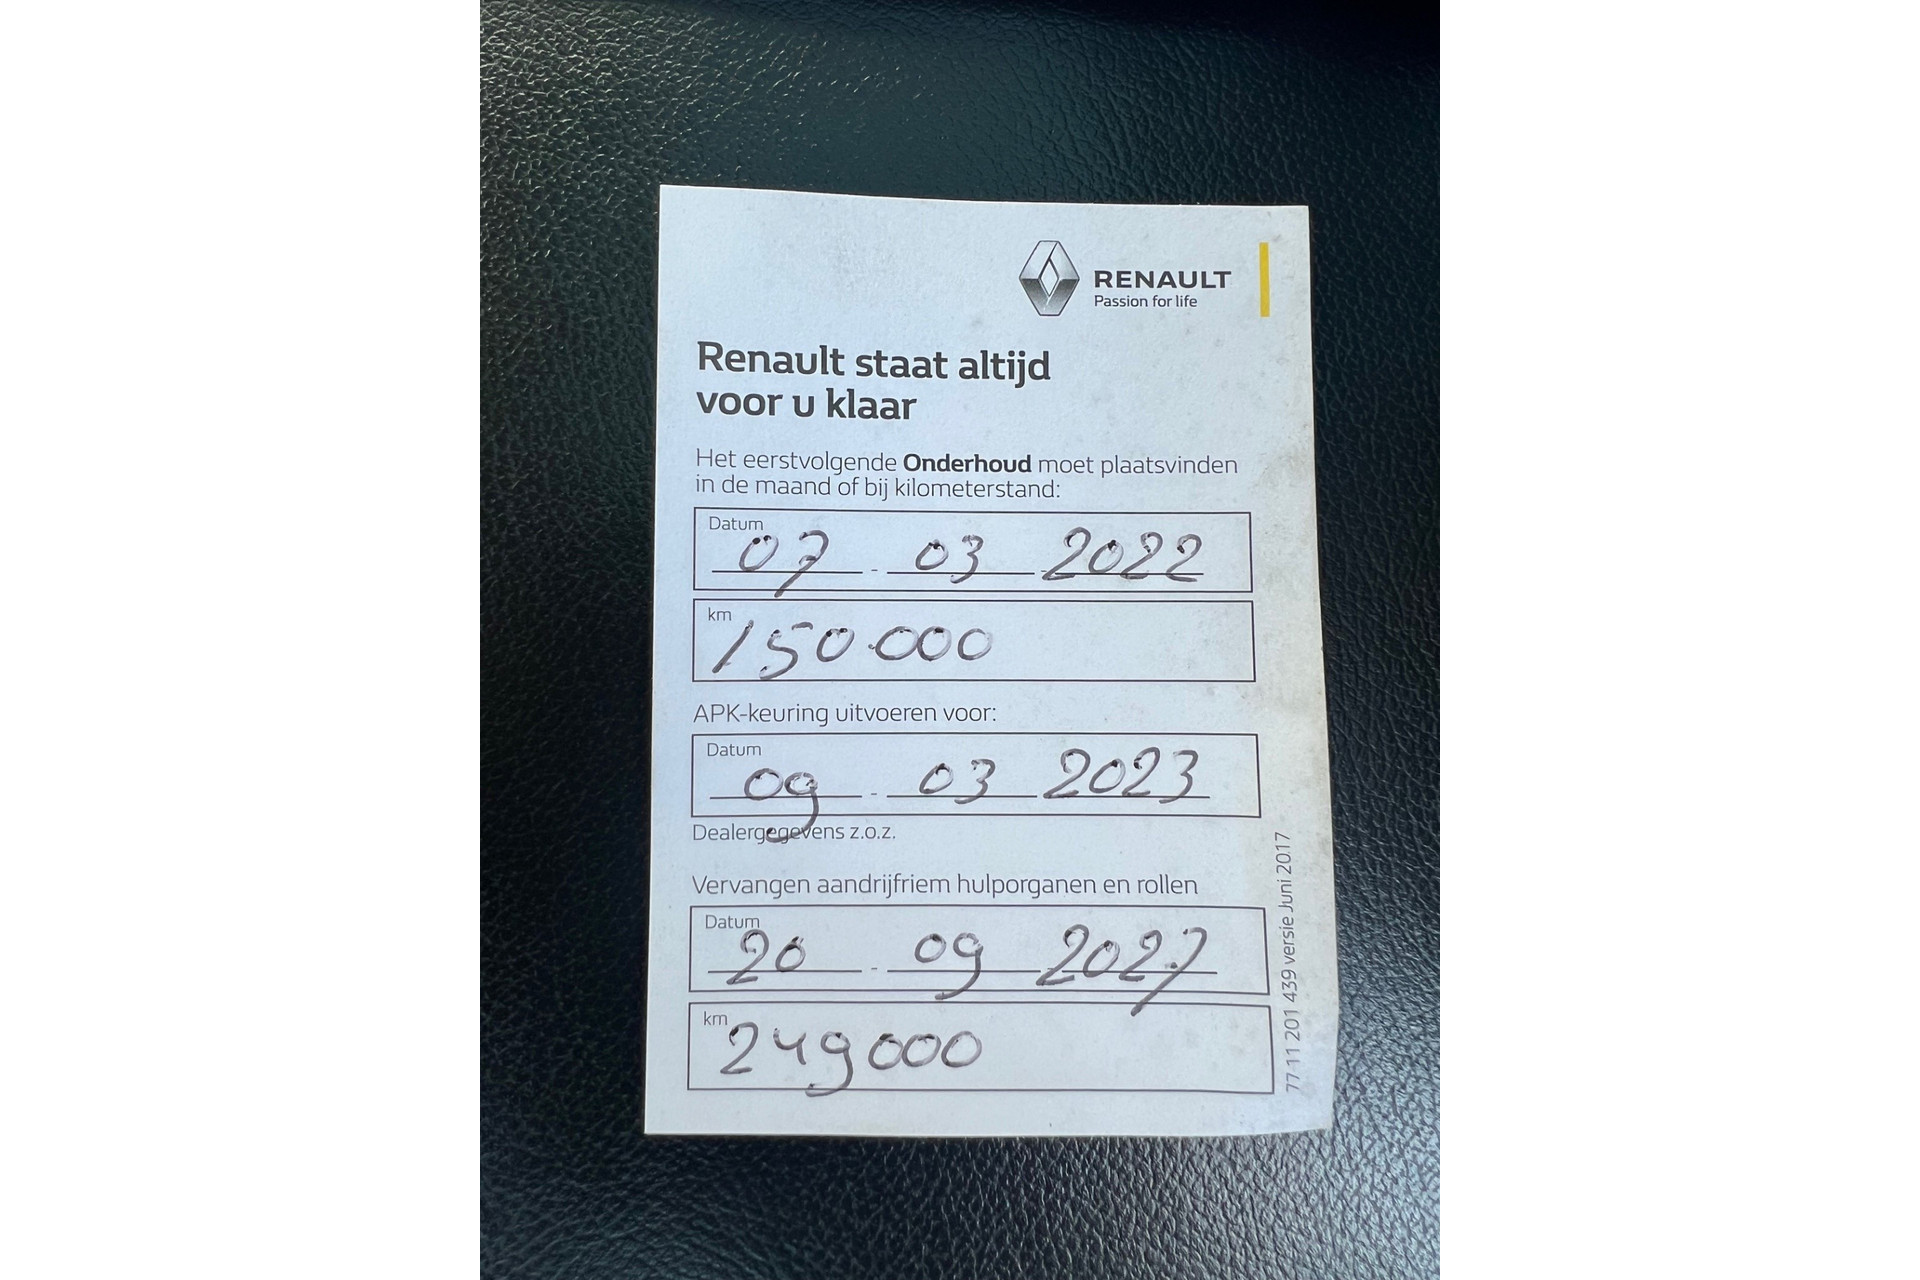 RENAULT
Passion for life
Renault staat altijd
voor u klaar
Het eerstvolgende Onderhoud moet plaatsvinden
in de maand of bij kilometerstand:
Datum
07 - 03 2022
km
150.000
APK-keuring uitvoeren voor:
Datum
09 - 03 2023
Dealergegevens z.o.z.
Vervangen aandrijfriem hulporganen en rollen
Datum
20 - 09 2027
km
249000
77 11 201 439 versie Juni 2017